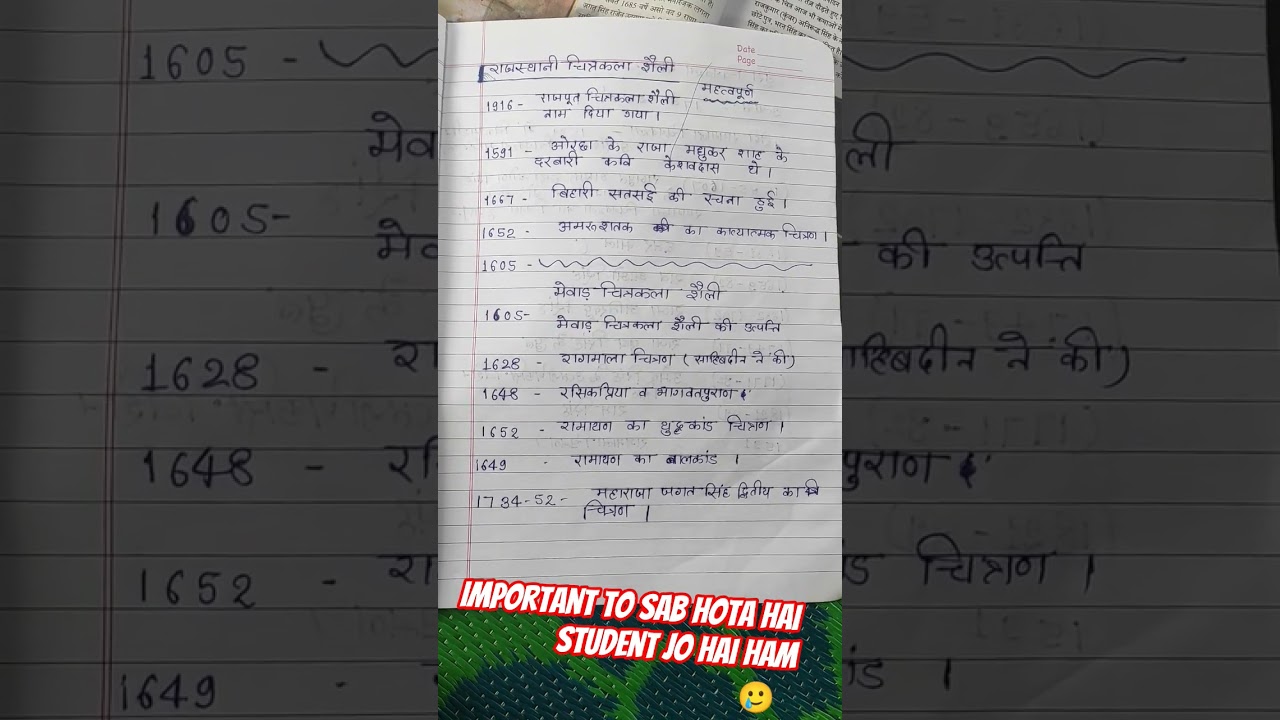 Date
Page
राजस्थानी चित्रकला शैली
महत्वपूर्ण
1916 - राजपूत चित्रकला शैली
नाम दिया गया।
1591 - ओरछा के राजा मधुकर शाह के
दरबारी कवि केशवदास थे।
1667 - बिहारी सतसई की रचना हुई।
1652 - अमरूशतक का काव्यात्मक चित्रण।
1605 -
मेवाड़ चित्रकला शैली
1605-
मेवाड़ चित्रकला शैली की उत्पत्ति
1628 - रागमाला चित्रण (साहिबदीन ने की)
1648 - रसिकप्रिया व भागवतपुराण
1652 - रामायण का युद्धकांड चित्रण।
1649 - रामायण का बालकांड।
1734-52 - महाराजा जगत सिंह द्वितीय का
चित्रण।
IMPORTANT TO SAB HOTA HAI
STUDENT JO HAI HAM